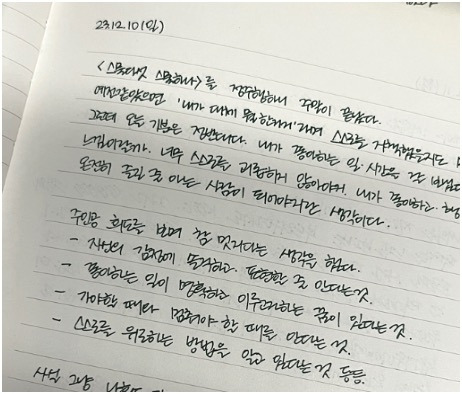 23.12.10(일)
<스물다섯 스물하나>를 정주행하니 주말이 끝났다.
예전같았으면 '내가 대체 뭘 한거지'라며 스스로를
그런데 오늘 기분은 정반대다. 내가 좋아하는 일·시간을 잘 보냈다
느낌이랄까. 너무 스스로를 괴롭히지 않아야지. 내가 좋아하고
온전히 즐길 줄 아는 사람이 되어야지란 생각이다.
주인공 희도를 보며 참 멋지다는 생각을 했다.
- 자신의 감정에 솔직하고 표현할 줄 안다는 것.
- 좋아하는 일이 명확하고 이루고자하는 꿈이 있다는 것.
- 가야할 때와 멈춰야 할 때를 안다는 것.
- 스스로를 위로하는 방법을 알고 있다는 것 등등.
사실 그냥